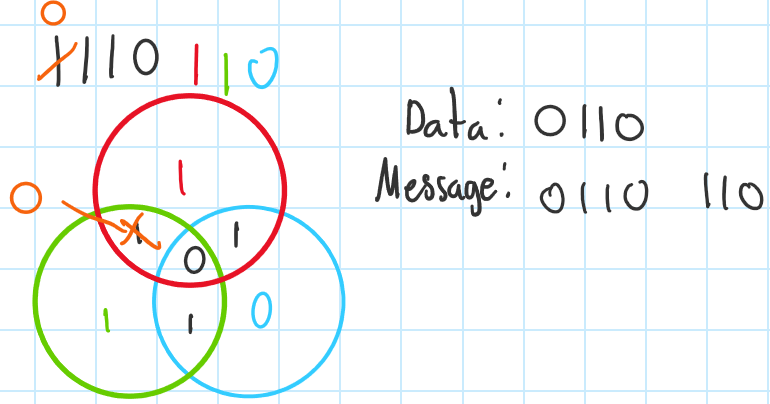 0
1110 110
Data: 0110
Message: 0110 110
1
0
1 1
0
1 1 0